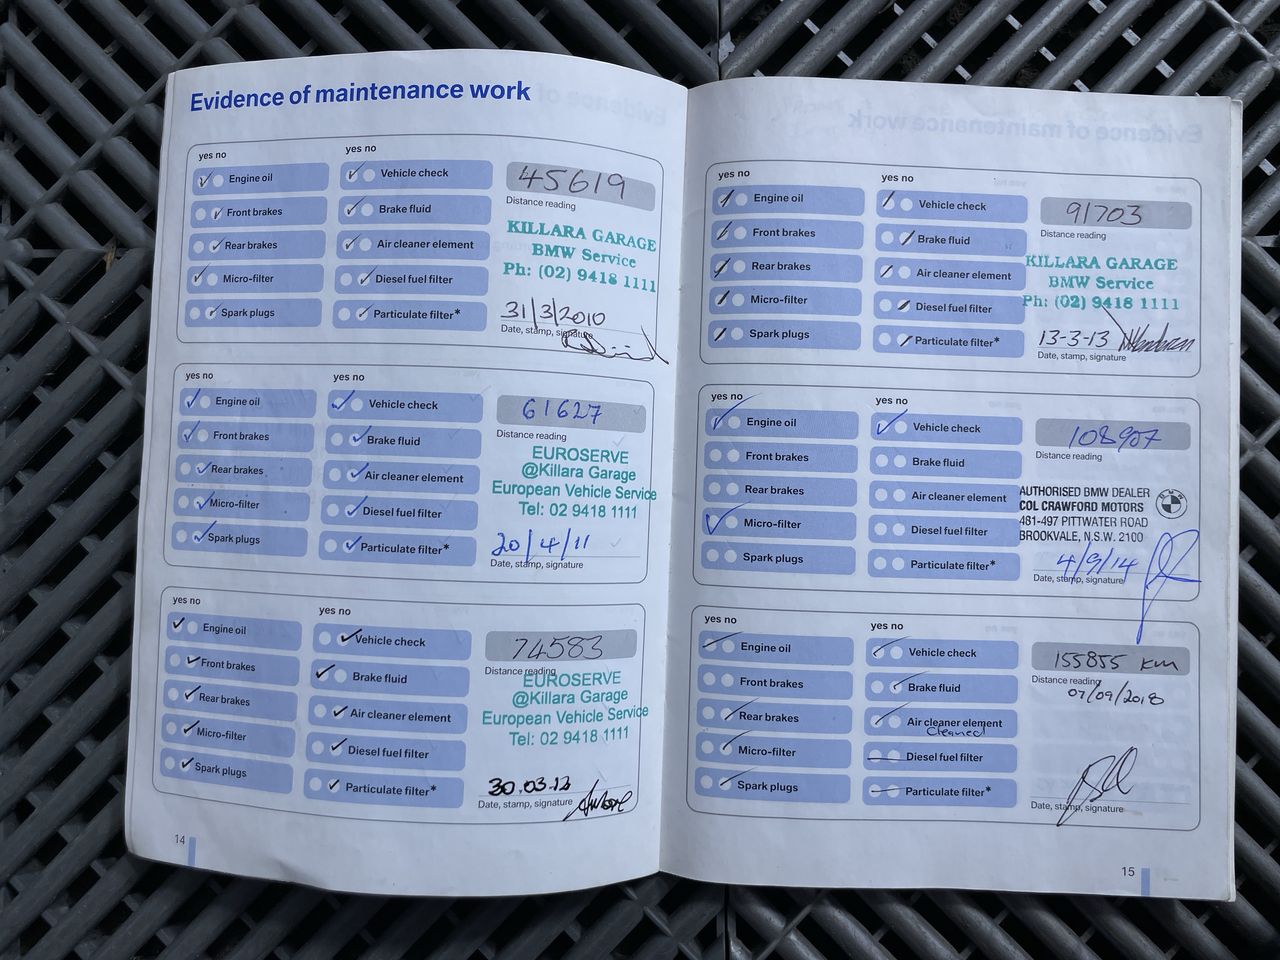 Evidence of maintenance work
yes no
yes no
Engine oil
Vehicle check
Front brakes
Brake fluid
Rear brakes
Air cleaner element
Micro-filter
Diesel fuel filter
Spark plugs
Particulate filter*
45619
Distance reading
KILLARA GARAGE
BMW Service
Ph: (02) 9418 1111
31/3/2010
Date, stamp, signature
yes no
yes no
Engine oil
Vehicle check
Front brakes
Brake fluid
Rear brakes
Air cleaner element
Micro-filter
Diesel fuel filter
Spark plugs
Particulate filter*
61627
Distance reading
EUROSERVE
@Killara Garage
European Vehicle Service
Tel: 02 9418 1111
20/4/11
Date, stamp, signature
yes no
yes no
Engine oil
Vehicle check
Front brakes
Brake fluid
Rear brakes
Air cleaner element
Micro-filter
Diesel fuel filter
Spark plugs
Particulate filter*
74583
Distance reading
EUROSERVE
@Killara Garage
European Vehicle Service
Tel: 02 9418 1111
30.03.12
Date, stamp, signature
14
yes no
yes no
Engine oil
Vehicle check
Front brakes
Brake fluid
Rear brakes
Air cleaner element
Micro-filter
Diesel fuel filter
Spark plugs
Particulate filter*
91703
Distance reading
KILLARA GARAGE
BMW Service
Ph: (02) 9418 1111
13-3-13
Date, stamp, signature
yes no
yes no
Engine oil
Vehicle check
Front brakes
Brake fluid
Rear brakes
Air cleaner element
Micro-filter
Diesel fuel filter
Spark plugs
Particulate filter*
108907
Distance reading
AUTHORISED BMW DEALER
COL CRAWFORD MOTORS
481-497 PITTWATER ROAD
BROOKVALE, N.S.W. 2100
4/9/14
Date, stamp, signature
yes no
yes no
Engine oil
Vehicle check
Front brakes
Brake fluid
Rear brakes
Air cleaner element
Cleaned
Micro-filter
Diesel fuel filter
Spark plugs
Particulate filter*
155855 km
Distance reading
07/09/2018
Date, stamp, signature
15